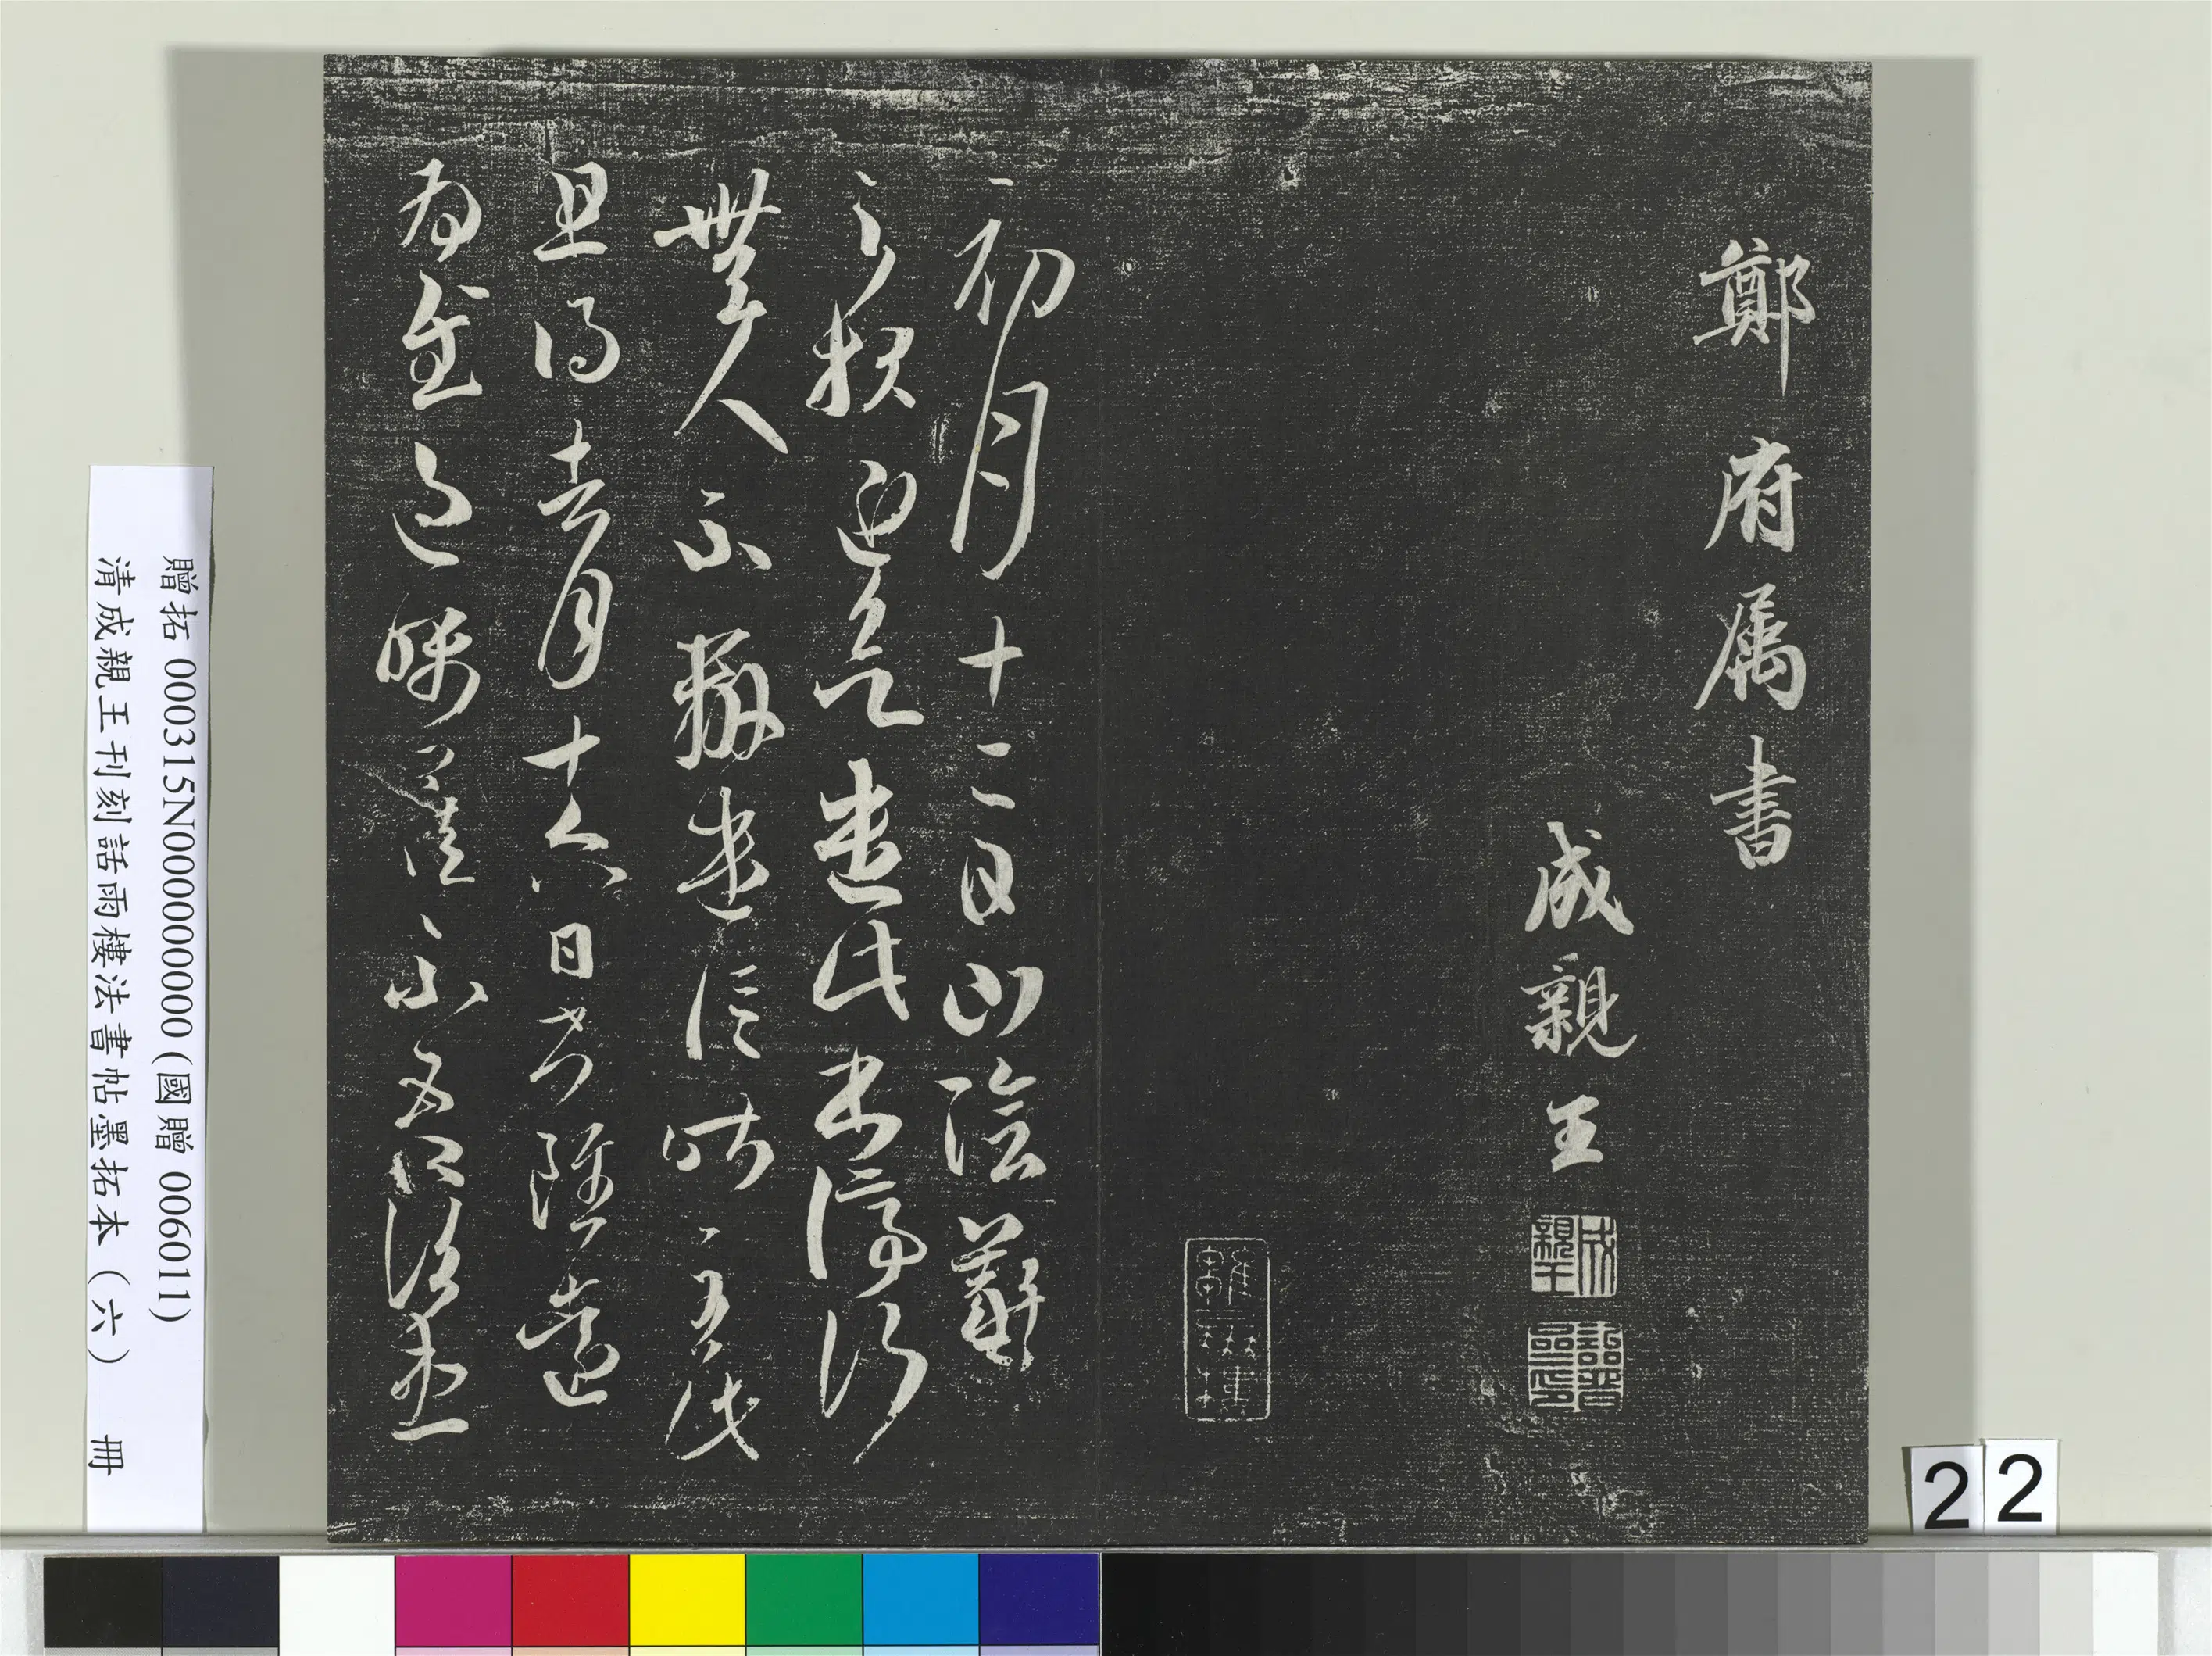 鄭府属書
成親王
成親王
詒晉齋印
初月十二日山陰羲
之報近欲遣此書停行
無人不辦遣信昨至此
且得去月十六日書雖遠
為慰過囑卿佳不吾諸患
贈拓 000315N000000000 (國贈 006011)
清成親王刊刻話雨樓法書帖墨拓本(六) 冊
22